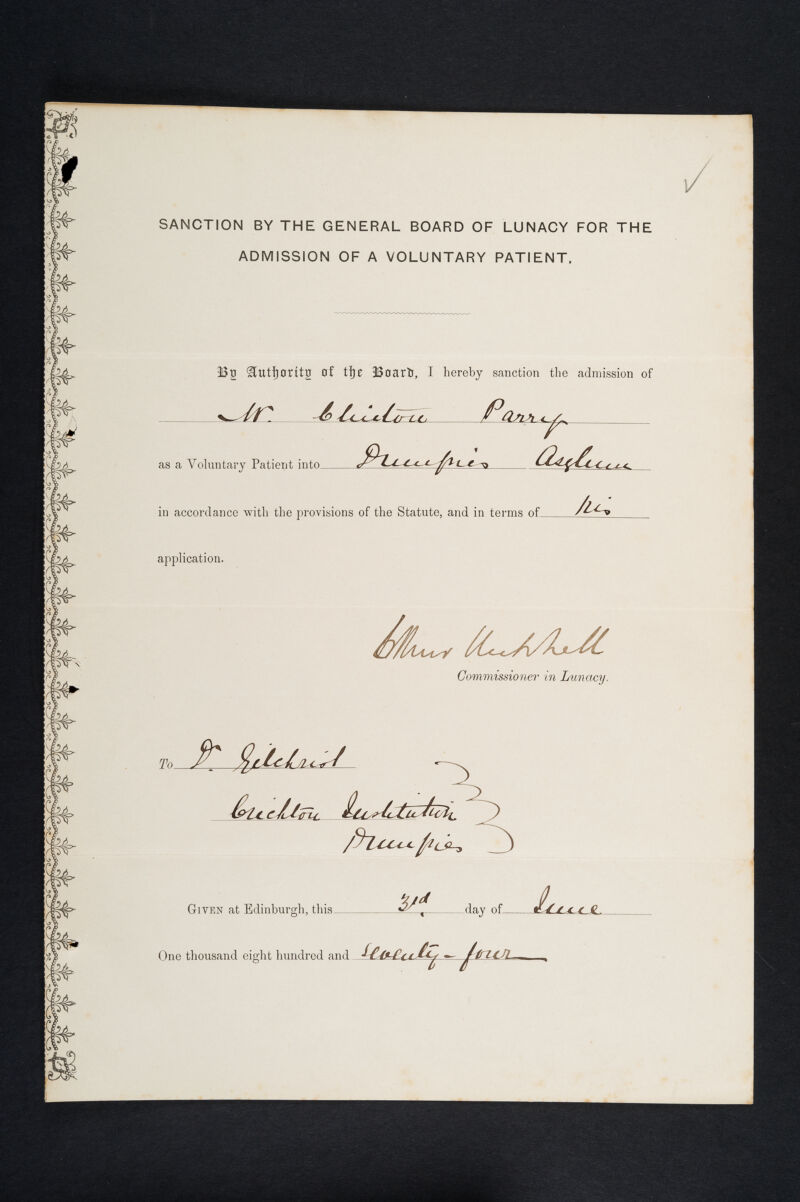 SANCTION BY THE GENERAL BOARD OF LUNACY FOR THE
ADMISSION OF A VOLUNTARY PATIENT.
By Authority of the Board, I hereby sanction the admission of
Mr. Clinton Parry
as a Voluntary Patient into Dumfries Asylum
in accordance with the provisions of the Statute, and in terms of his
application.
Arthur Mitchell
Commissioner in Lunacy.
To Dr. Gilchrist
Crichton Institution
Dumfries
GIVEN at Edinburgh, this 3rd day of June
One thousand eight hundred and seventy-four